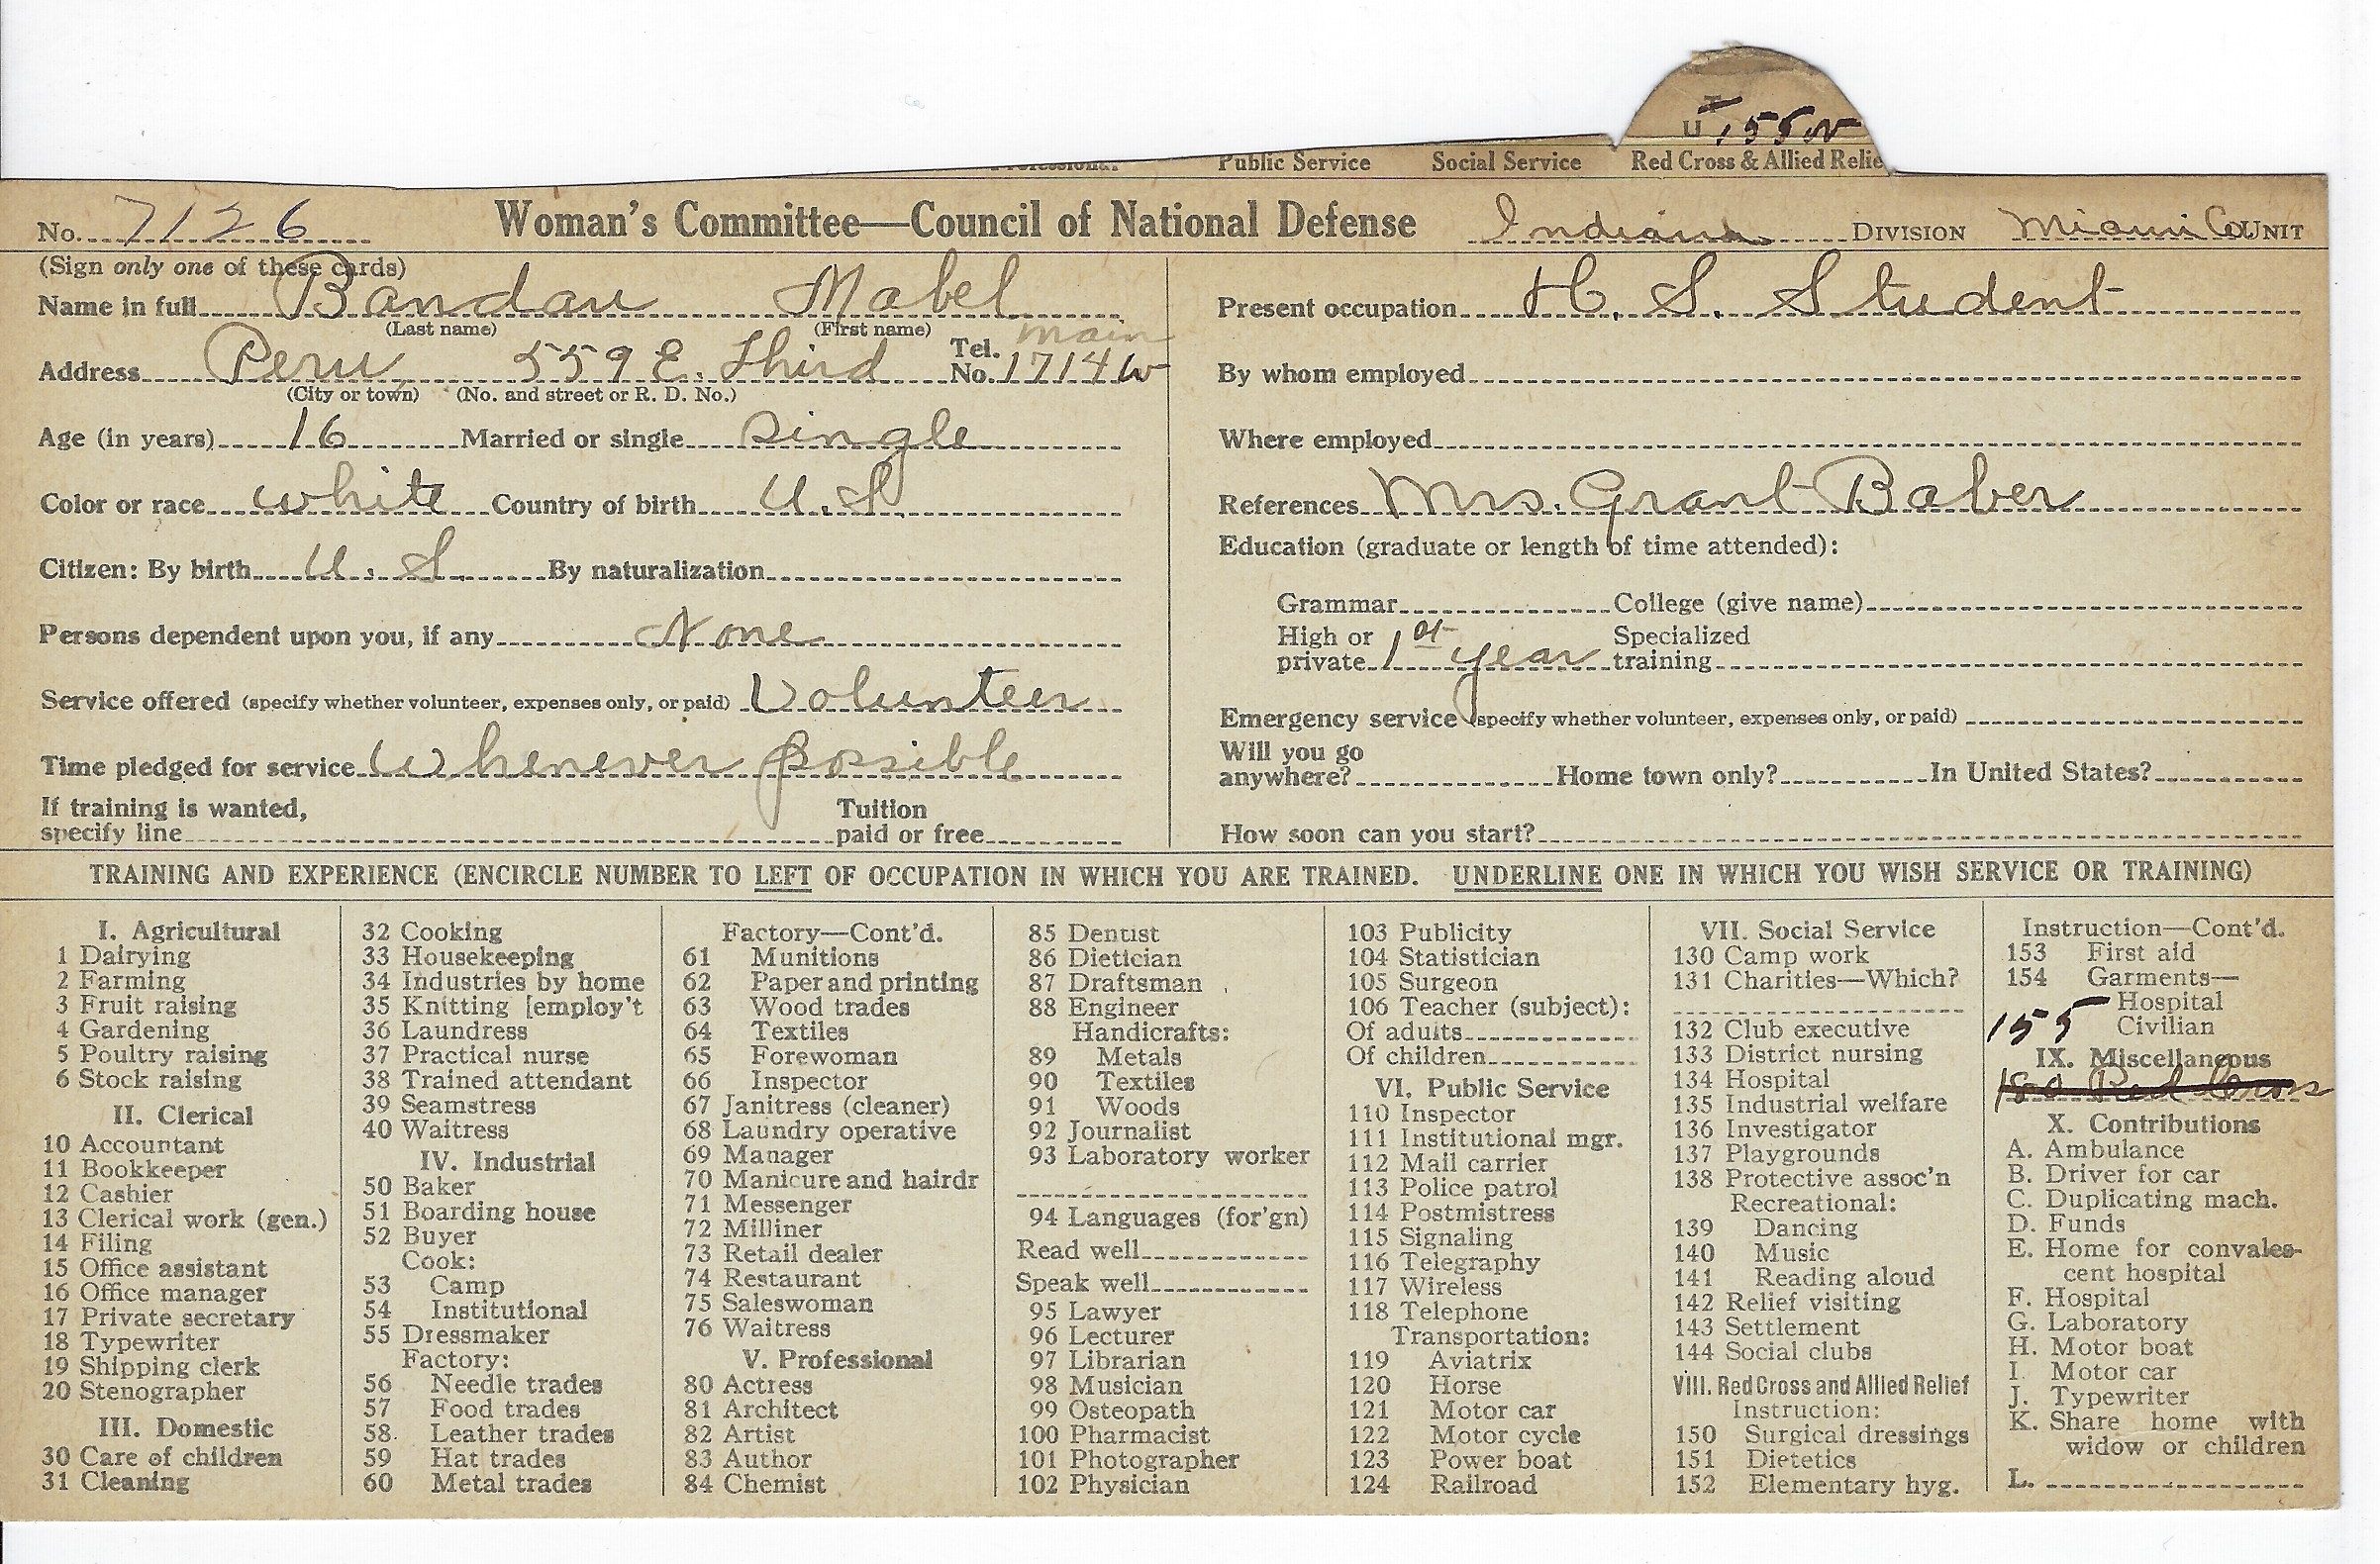 155
Public Service Social Service Red Cross & Allied Relie
No. 7126 Woman's Committee—Council of National Defense Indiana DIVISION Miami Co UNIT
(Sign only one of these cards)
Name in full Bandau Mabel
(Last name) (First name)
Address Peru 559 E. Third Tel. No. Main 1714 W
(City or town) (No. and street or R. D. No.)
Age (in years) 16 Married or single Single
Color or race white Country of birth U.S.
Citizen: By birth U. S. By naturalization
Persons dependent upon you, if any None
Service offered (specify whether volunteer, expenses only, or paid) Volunteer
Time pledged for service Whenever possible
If training is wanted,
specify line
Tuition
paid or free
Present occupation H. S. Student
By whom employed
Where employed
References Mrs. Grant Baber
Education (graduate or length of time attended):
Grammar College (give name)
High or private 1st year Specialized training
Emergency service (specify whether volunteer, expenses only, or paid)
Will you go
anywhere? Home town only? In United States?
How soon can you start?
TRAINING AND EXPERIENCE (ENCIRCLE NUMBER TO LEFT OF OCCUPATION IN WHICH YOU ARE TRAINED. UNDERLINE ONE IN WHICH YOU WISH SERVICE OR TRAINING)
I. Agricultural
1 Dairying
2 Farming
3 Fruit raising
4 Gardening
5 Poultry raising
6 Stock raising
II. Clerical
10 Accountant
11 Bookkeeper
12 Cashier
13 Clerical work (gen.)
14 Filing
15 Office assistant
16 Office manager
17 Private secretary
18 Typewriter
19 Shipping clerk
20 Stenographer
III. Domestic
30 Care of children
31 Cleaning
32 Cooking
33 Housekeeping
34 Industries by home
35 Knitting [employ't
36 Laundress
37 Practical nurse
38 Trained attendant
39 Seamstress
40 Waitress
IV. Industrial
50 Baker
51 Boarding house
52 Buyer
Cook:
53 Camp
54 Institutional
55 Dressmaker
Factory:
56 Needle trades
57 Food trades
58 Leather trades
59 Hat trades
60 Metal trades
Factory—Cont'd.
61 Munitions
62 Paper and printing
63 Wood trades
64 Textiles
65 Forewoman
66 Inspector
67 Janitress (cleaner)
68 Laundry operative
69 Manager
70 Manicure and hairdr
71 Messenger
72 Milliner
73 Retail dealer
74 Restaurant
75 Saleswoman
76 Waitress
V. Professional
80 Actress
81 Architect
82 Artist
83 Author
84 Chemist
85 Dentist
86 Dietician
87 Draftsman
88 Engineer
Handicrafts:
89 Metals
90 Textiles
91 Woods
92 Journalist
93 Laboratory worker
94 Languages (for'gn)
Read well
Speak well
95 Lawyer
96 Lecturer
97 Librarian
98 Musician
99 Osteopath
100 Pharmacist
101 Photographer
102 Physician
103 Publicity
104 Statistician
105 Surgeon
106 Teacher (subject):
Of adults
Of children
VI. Public Service
110 Inspector
111 Institutional mgr.
112 Mail carrier
113 Police patrol
114 Postmistress
115 Signaling
116 Telegraphy
117 Wireless
118 Telephone
Transportation:
119 Aviatrix
120 Horse
121 Motor car
122 Motor cycle
123 Power boat
124 Railroad
VII. Social Service
130 Camp work
131 Charities—Which?
132 Club executive
133 District nursing
134 Hospital
135 Industrial welfare
136 Investigator
137 Playgrounds
138 Protective assoc'n
Recreational:
139 Dancing
140 Music
141 Reading aloud
142 Relief visiting
143 Settlement
144 Social clubs
VIII. Red Cross and Allied Relief
Instruction:
150 Surgical dressings
151 Dietetics
152 Elementary hyg.
Instruction—Cont'd.
153 First aid
154 Garments—
Hospital
155 Civilian
IX. Miscellaneous
180 Red Cross
X. Contributions
A. Ambulance
B. Driver for car
C. Duplicating mach.
D. Funds
E. Home for convales-
cent hospital
F. Hospital
G. Laboratory
H. Motor boat
I. Motor car
J. Typewriter
K. Share home with
widow or children
L.